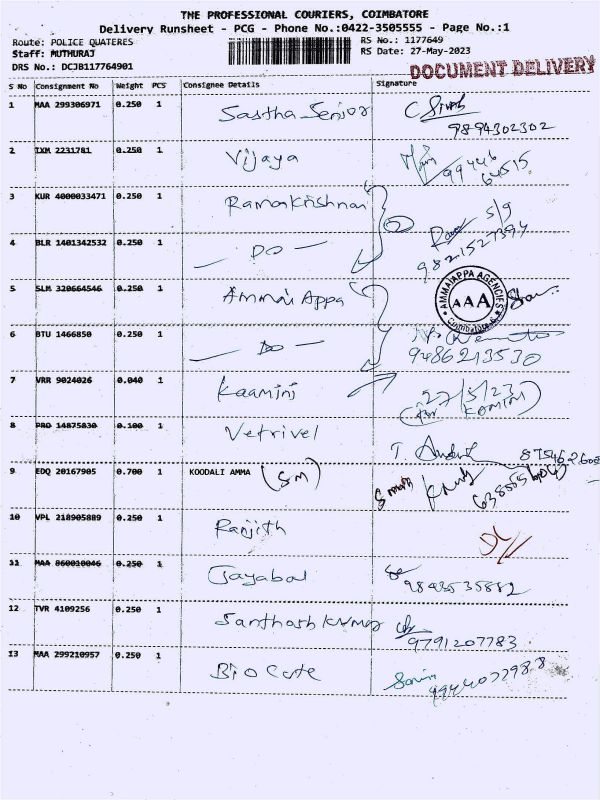 THE PROFESSIONAL COURIERS, COIMBATORE
Delivery Runsheet - PCG - Phone No.:0422-3505555 - Page No.:1
Route: POLICE QUATERES
RS No.: 1177649
Staff: MUTHURAJ
RS Date: 27-May-2023
DRS No.: DCJB117764901
DOCUMENT DELIVERY
S No Consignment No Weight PCS Consignee Details Signature
1 MAA 299306971 0.250 1 Sastha Senior
9894302302
2 IXM 2231781 0.250 1 Vijaya
99446
64515
3 KUR 4000033471 0.250 1 Ramakrishnan
5/9
4 BLR 1401342532 0.250 1 — DO —
9821527394
5 SLM 320664546 0.250 1 Ammai Appa
AMMAIAPPA AGENCIES
AAA
Coimbatore
6 BTU 1466850 0.250 1 — DO —
9486213530
7 VRR 9024026 0.040 1 Kaamini
27/5/23
KAMINI
8 PRO 14875830 0.100 1 Vetrivel
9 EDQ 20167905 0.700 1 KOODALI AMMA (SM)
10 VPL 218905889 0.250 1 Ranjith
11 MAA 860010046 0.250 1 Jayabal
9843535882
12 TVR 4109256 0.250 1 Santhosh Kumar
9791207783
13 MAA 299210957 0.250 1 Bio Cate